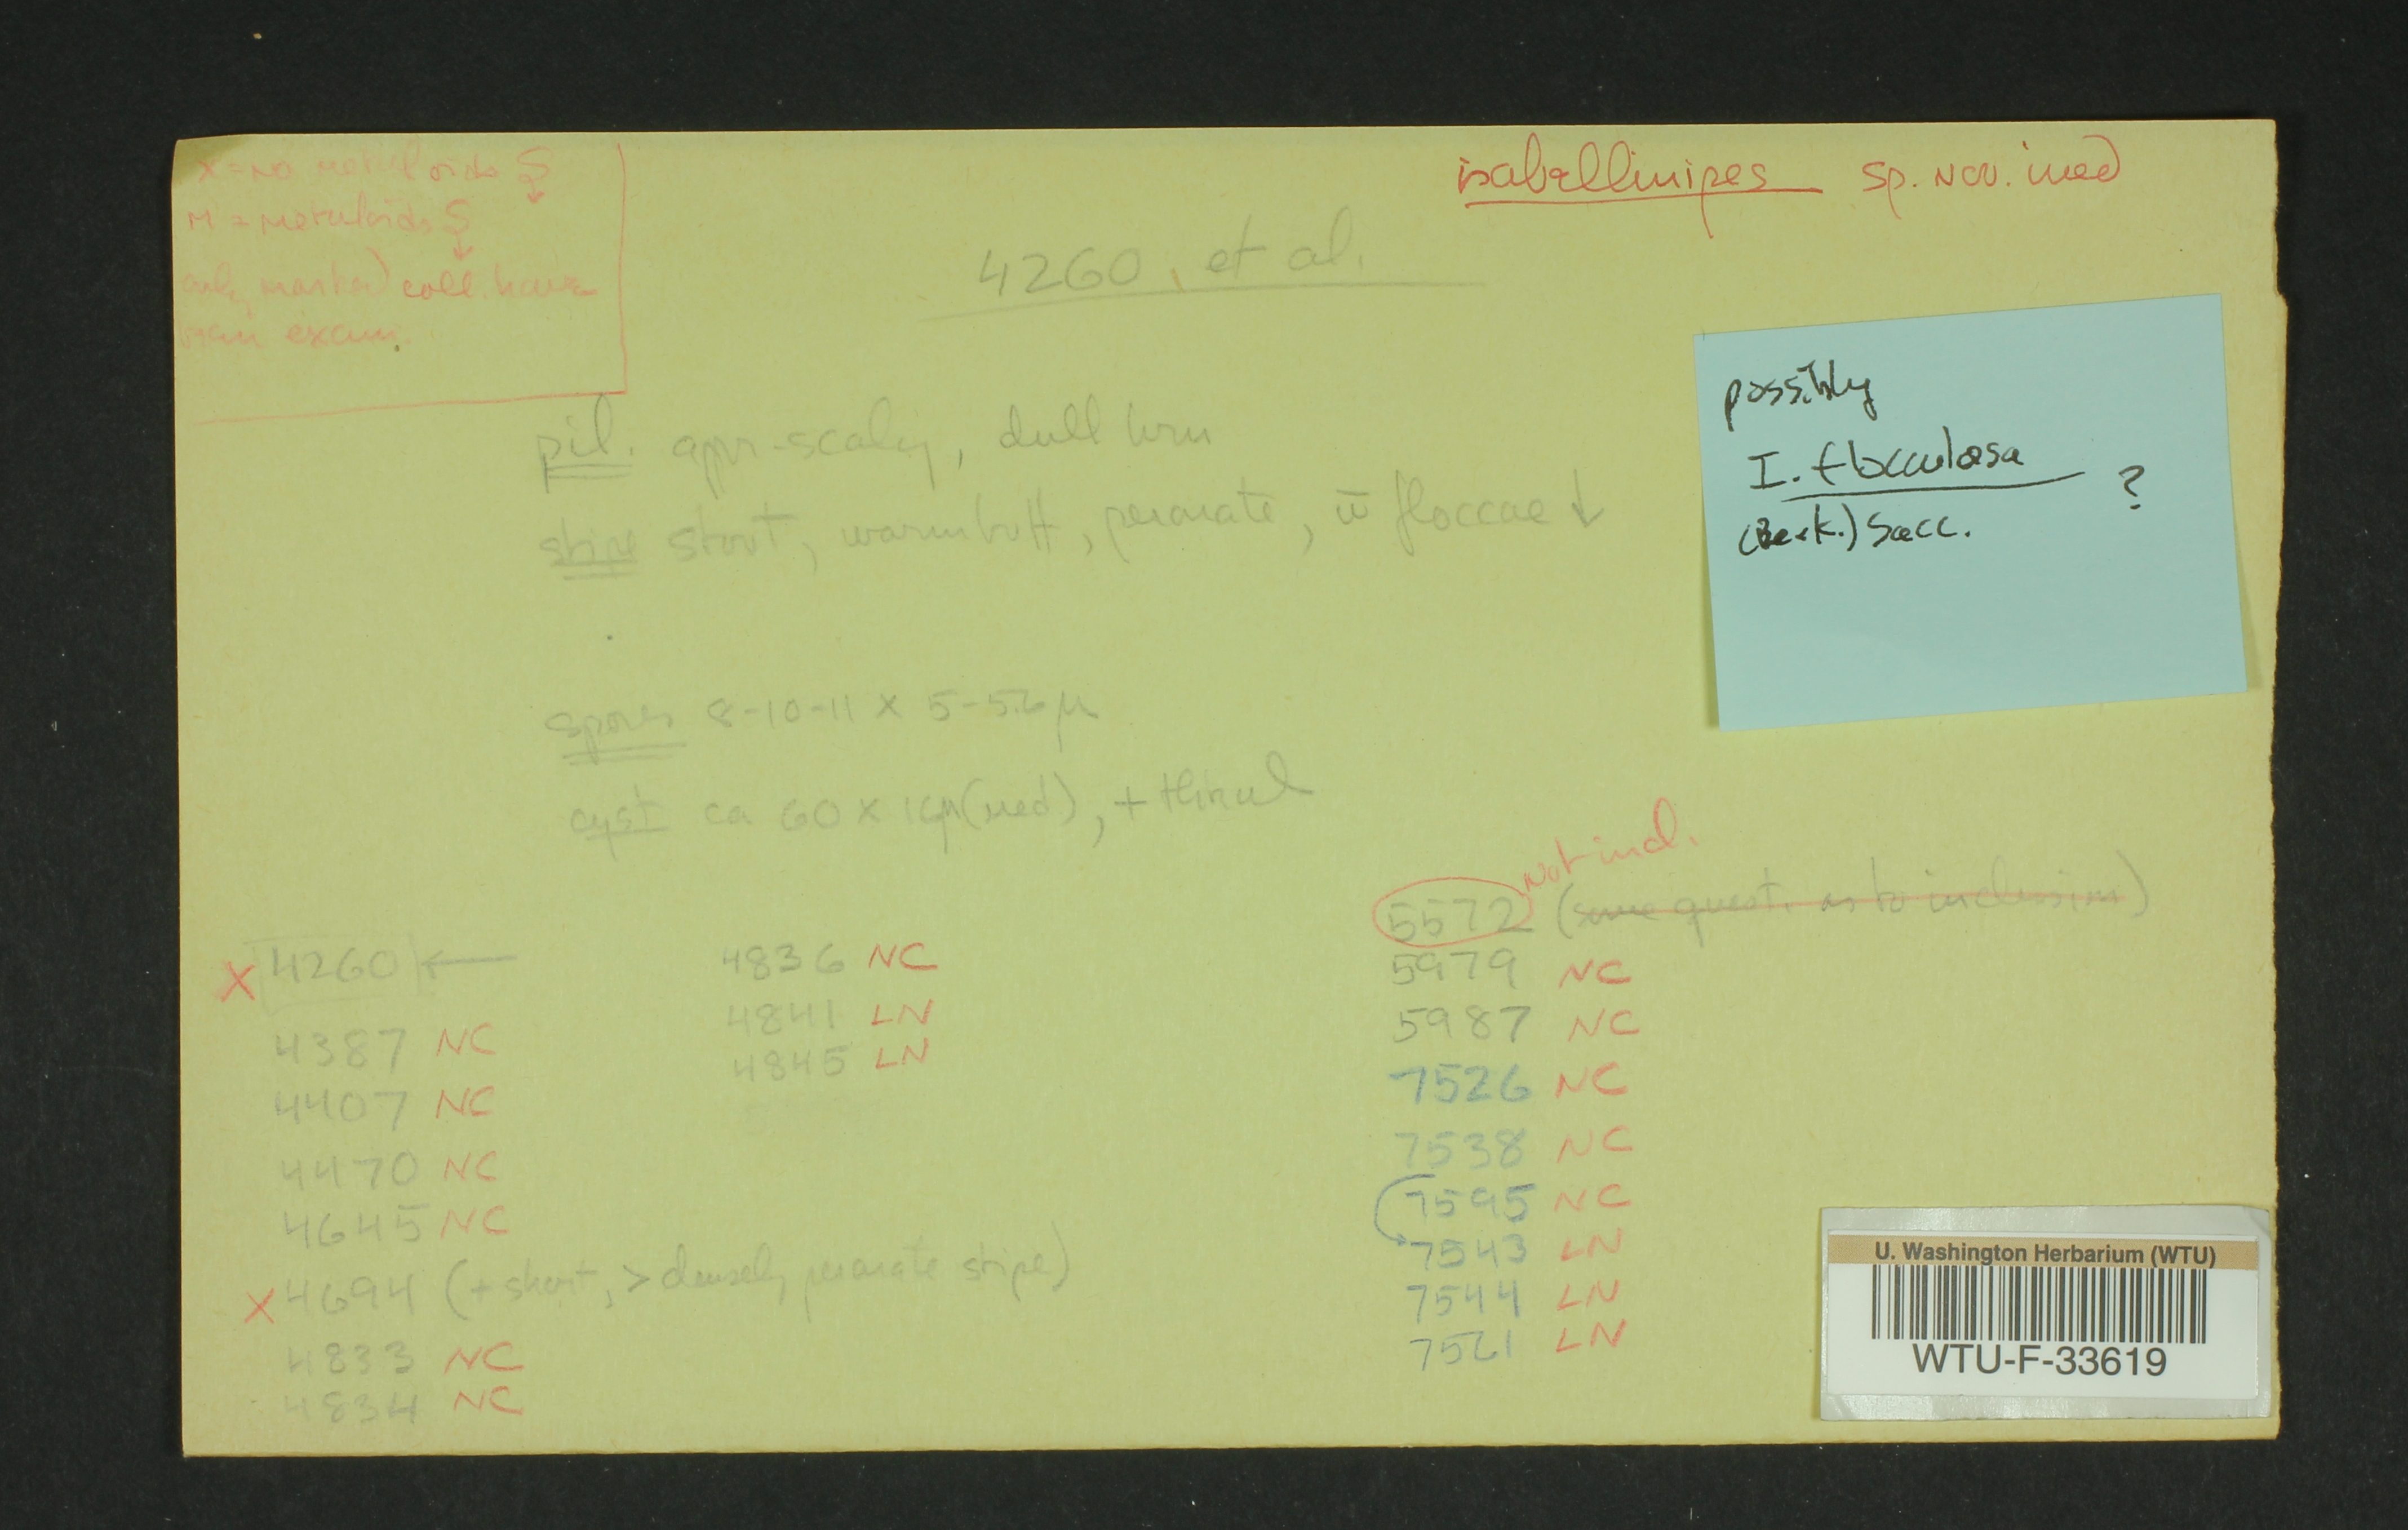 X = no metuloids
M = metuloids
only marked coll. have
exam.
isabellinipes sp. nov. ined
4260, et al.
possibly
I. flocculosa ?
(Berk.) Sacc.
pil. appr-scaly, dull brn
stipe stout, warm buff, peronate, w̄ floccae ↓
spores 8-10-11 x 5-5.6 µ
cyst ca 60 x 16µ (med), +
X 4260 ←
4387 NC
4407 NC
4470 NC
4645 NC
X 4694 (+ short, > densely peronate stipe)
4833 NC
4834 NC
4836 NC
4841 LN
4845 LN
Not incl.
5572 (some quest. as to inclusion)
5979 NC
5987 NC
7526 NC
7538 NC
7595 NC
7543 LN
7544 LN
7521 LN
U. Washington Herbarium (WTU)
WTU-F-33619